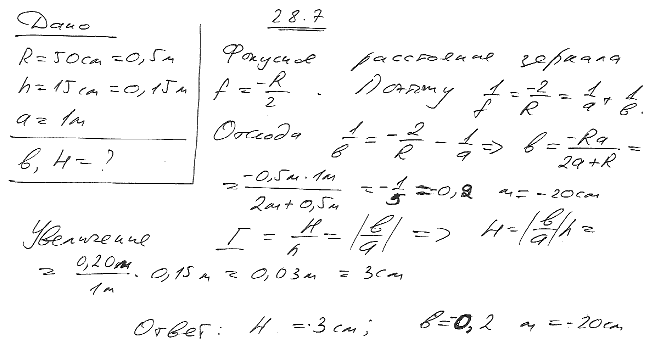 28.7
Дано
R = 50 см = 0,5 м
h = 15 см = 0,15 м
a = 1 м
b, H = ?
Фокусное расстояние зеркала
f = -R/2 . Поэтому 1/f = -2/R = 1/a + 1/b.
Отсюда 1/b = -2/R - 1/a => b = -Ra/(2a+R) =
= -0,5 м · 1 м/(2 м + 0,5 м) = -1/5 = -0,2 м = -20 см
Увеличение Г = H/h = |b/a| => H = |b/a| h =
= 0,20 м/1 м · 0,15 м = 0,03 м = 3 см
Ответ: H = 3 см; b = -0,2 м = -20 см